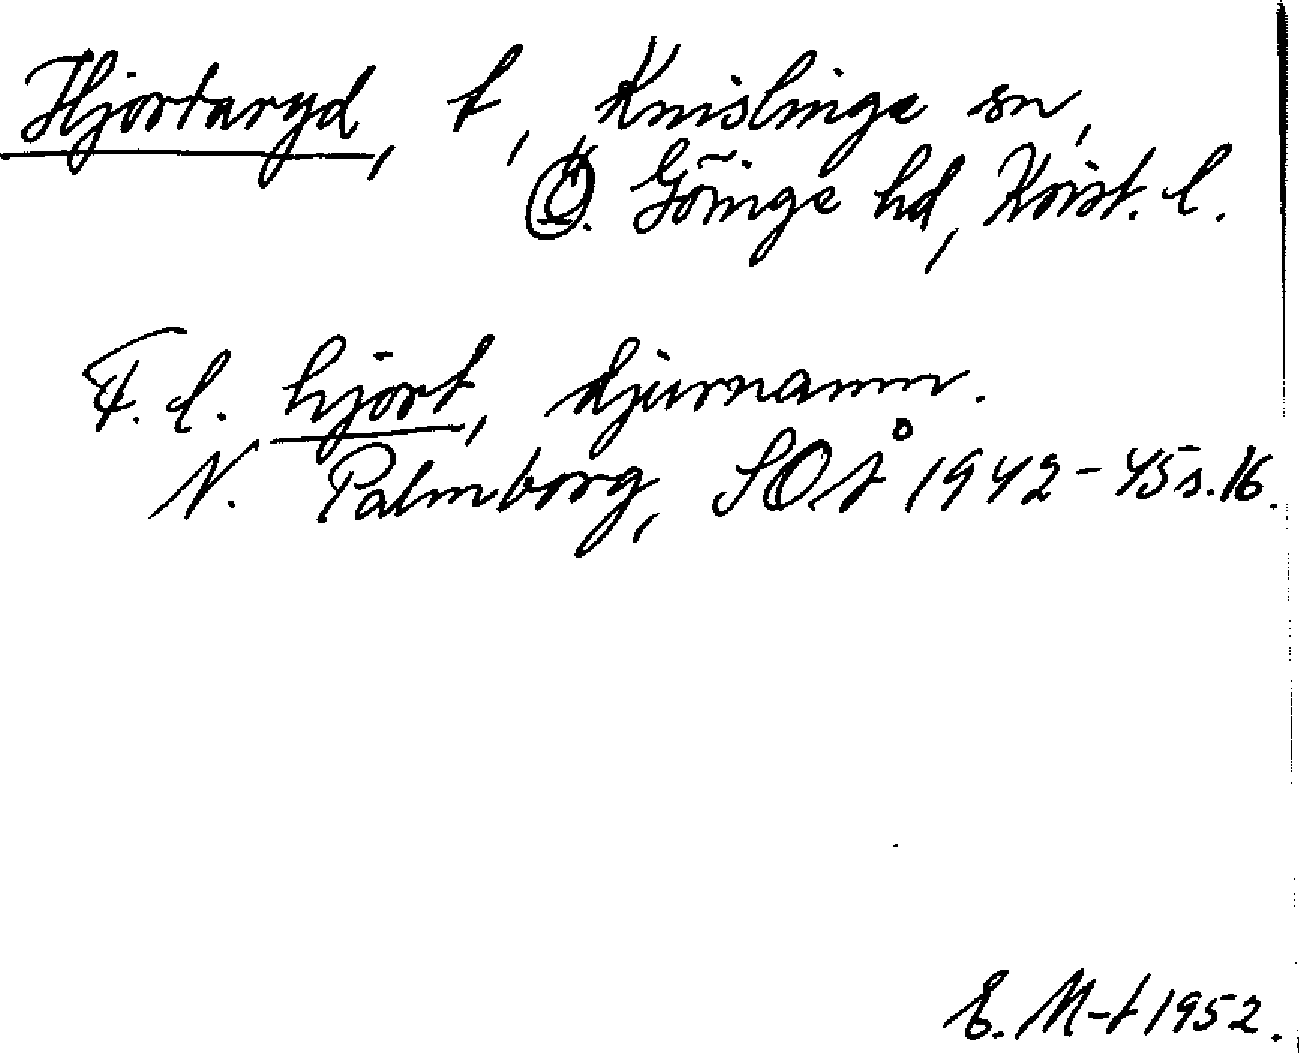 Hjortaryd, t, Knislinge sn,
Ö. Göinge hd, Krist. l.
F. l. hjort, djurnamn.
N. Palmborg, SOÅ 1942-45 s. 16.
E. M-t 1952.